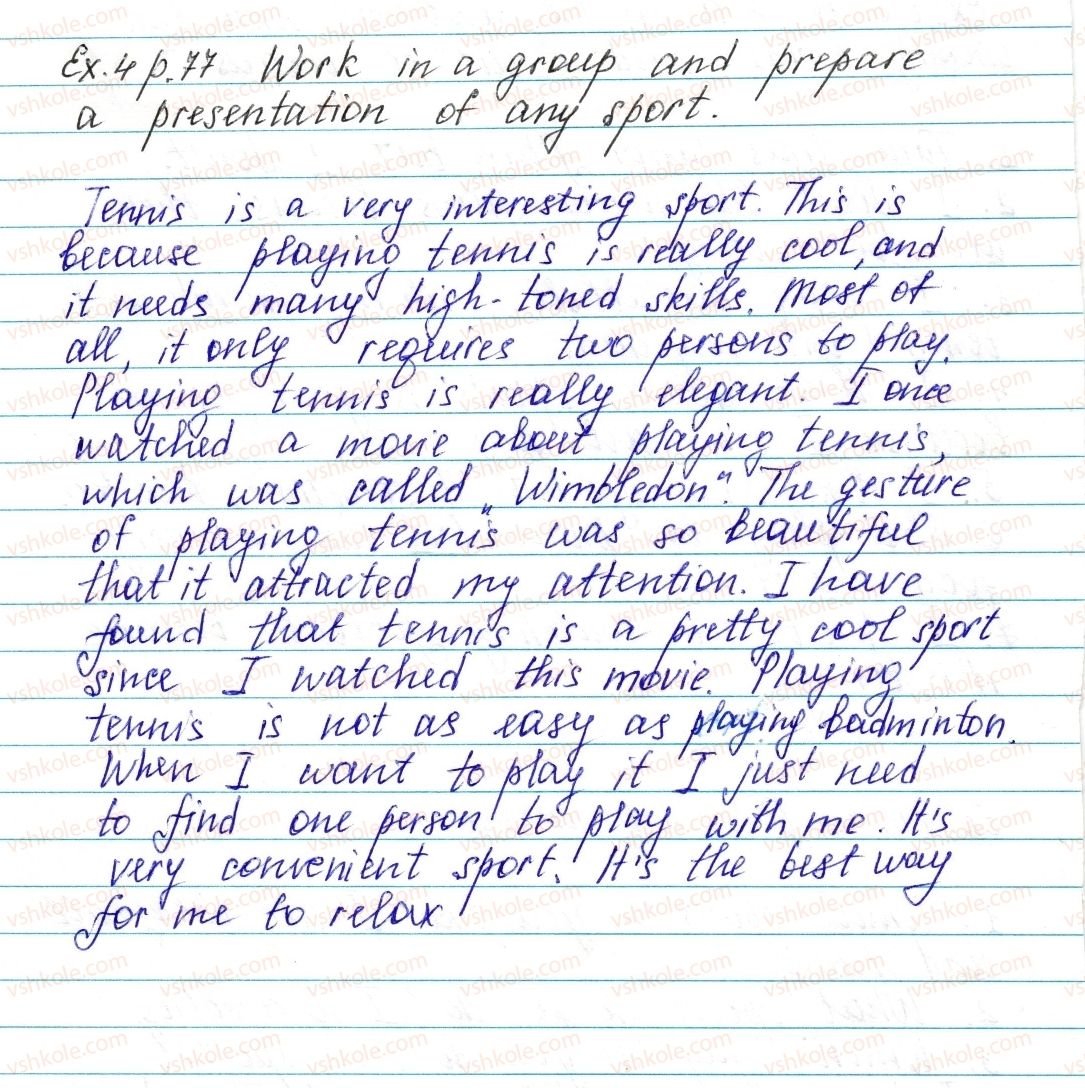 Ex.4 p.77 Work in a group and prepare
a presentation of any sport.
Tennis is a very interesting sport. This is
because playing tennis is really cool, and
it needs many high-toned skills. Most of
all, it only requires two persons to play.
Playing tennis is really elegant. I once
watched a movie about playing tennis,
which was called „Wimbledon". The gesture
of playing tennis was so beautiful
that it attracted my attention. I have
found that tennis is a pretty cool sport
since I watched this movie. Playing
tennis is not as easy as playing badminton.
When I want to play it I just need
to find one person to play with me. It's
very convenient sport. It's the best way
for me to relax
vshkole.com